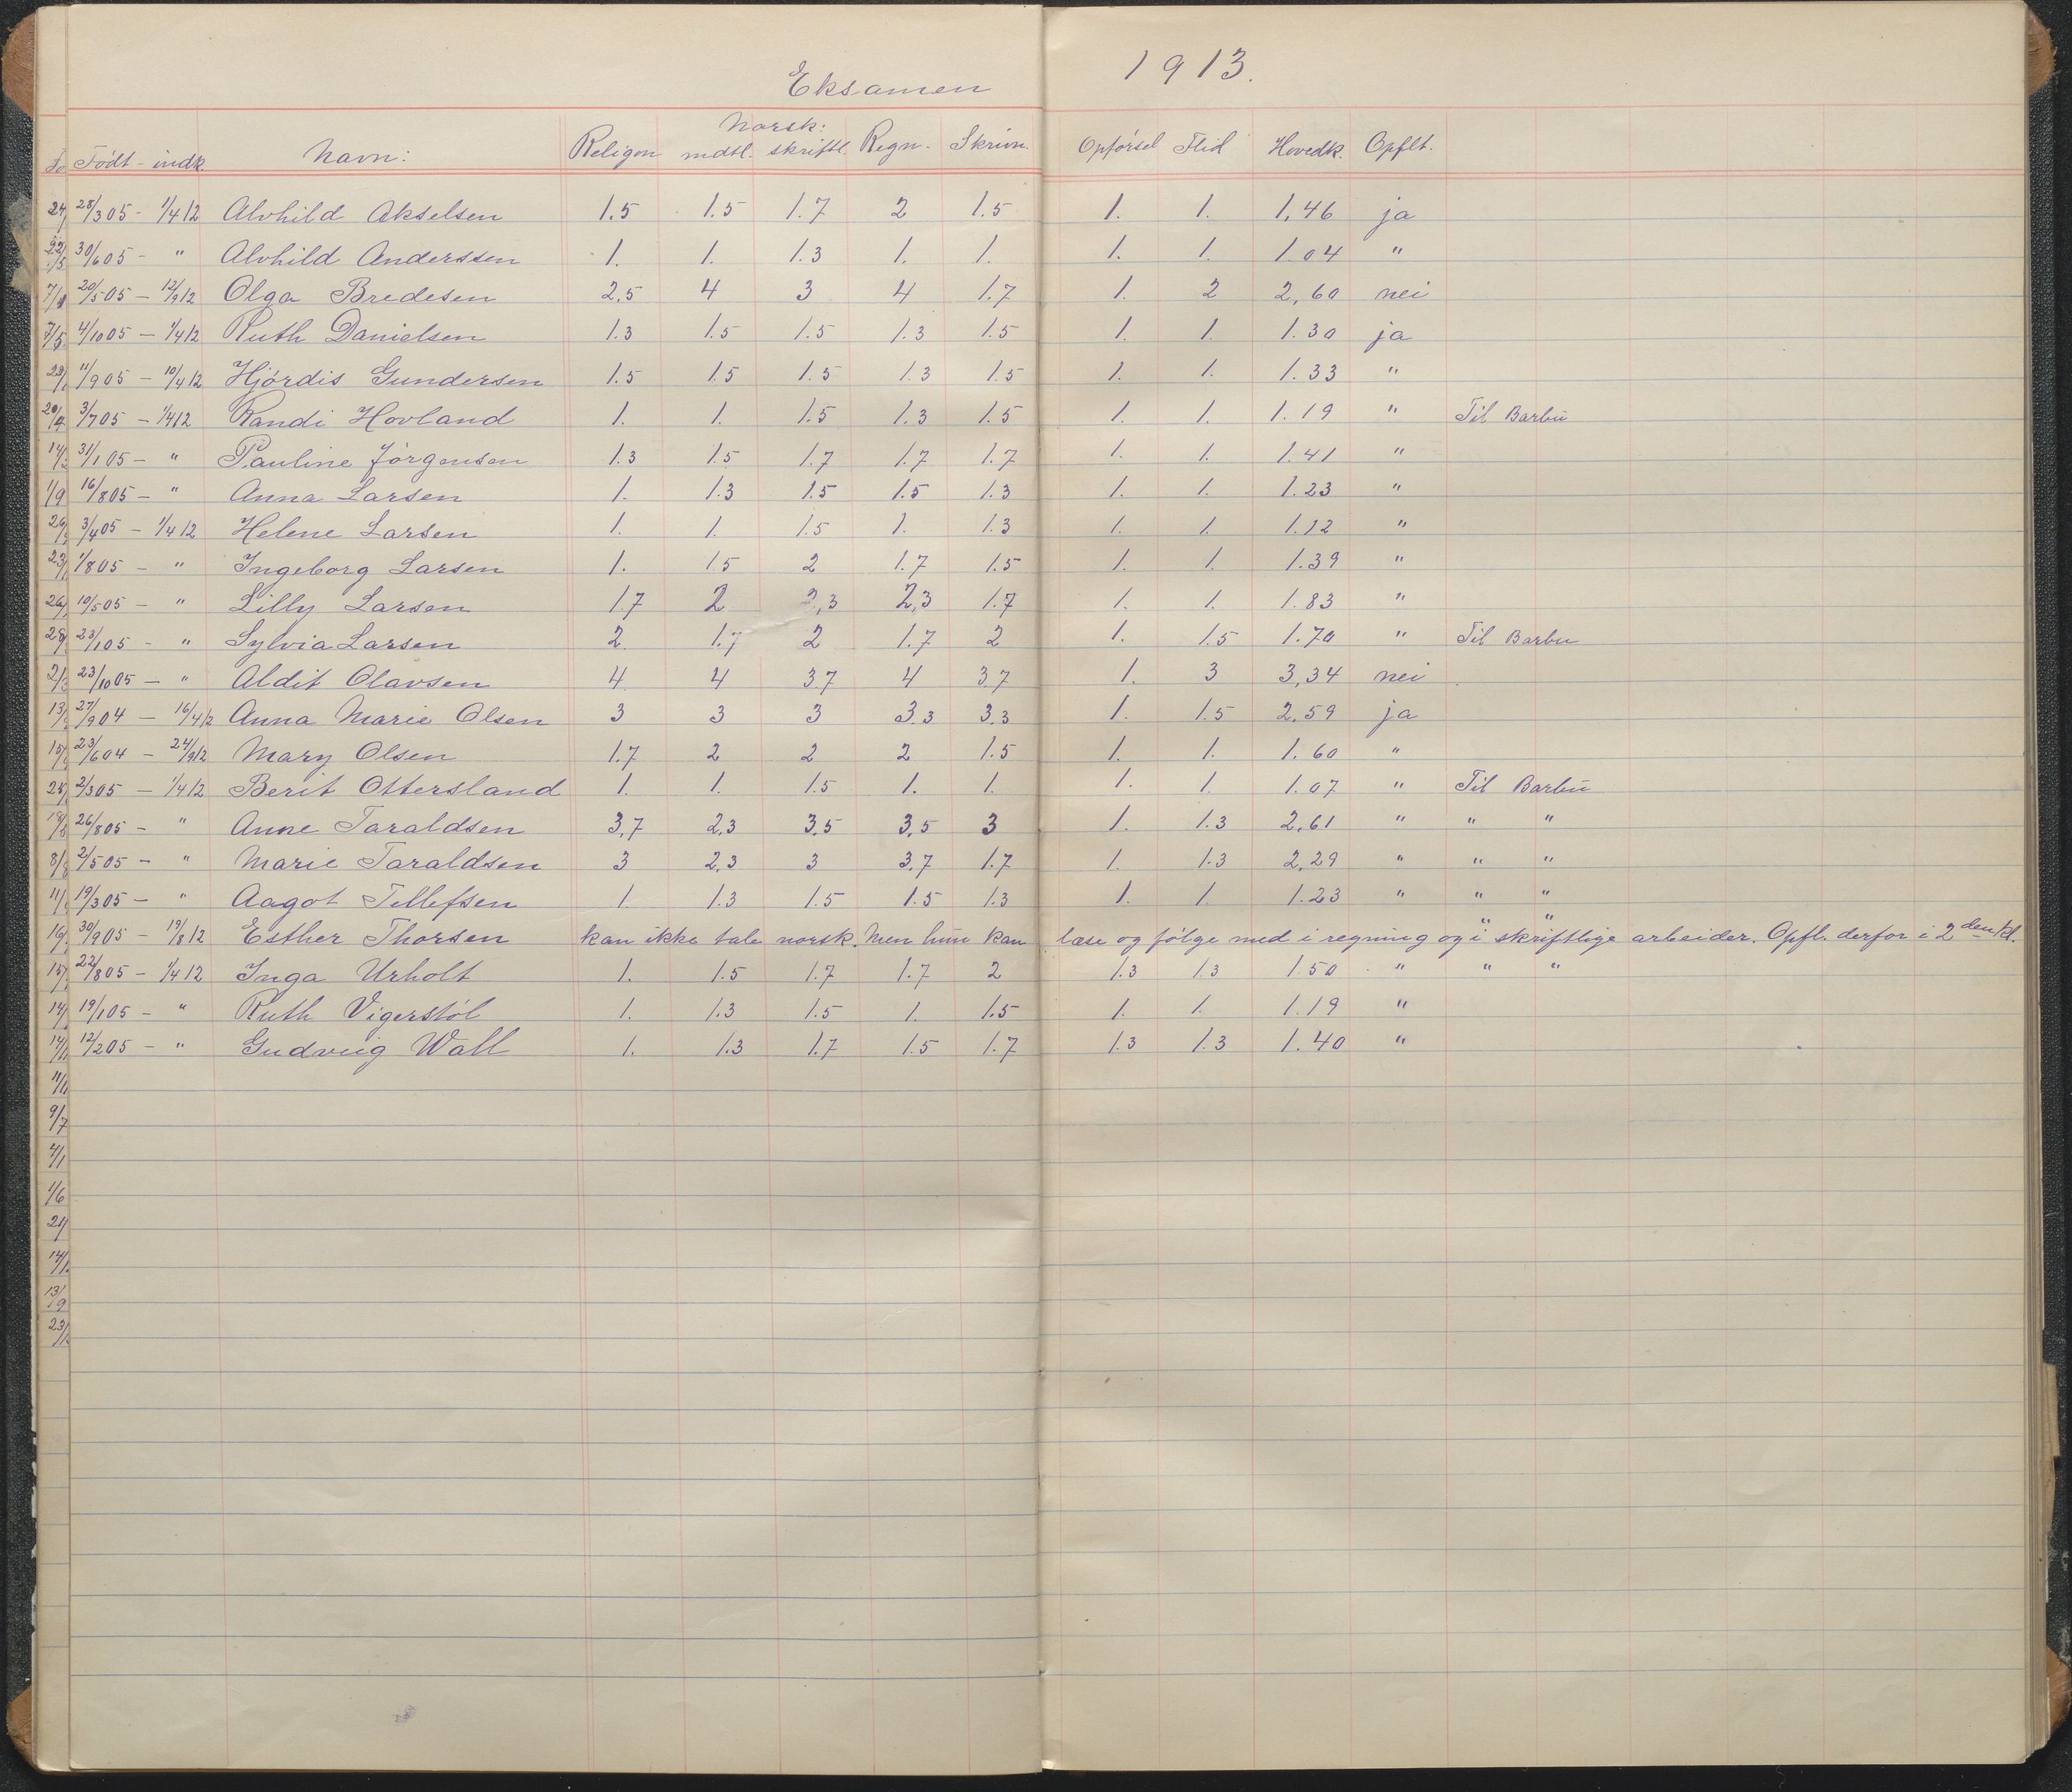 Eksamen 1913.
Norsk:
Født - indk. Navn: Religion mdtl. skriftl. Regn. Skrivn. Opførsel Flid Hovedk. Opflt.
28/3 05 - 1/4 12 Alvhild Akselsen 1.5 1.5 1.7 2 1.5 1. 1. 1,46 ja
30/6 05 - " Alvhild Anderssen 1. 1. 1.3 1. 1. 1. 1. 1.04 "
20/5 05 - 12/9 12 Olga Bredesen 2,5 4 3 4 1.7 1. 2 2,60 nei
4/10 05 - 1/4 12 Ruth Danielsen 1.3 1.5 1.5 1.3 1.5 1. 1. 1.30 ja
11/9 05 - 10/4 12 Hjørdis Gundersen 1.5 1.5 1.5 1.3 1.5 1. 1. 1.33 "
3/7 05 - 1/4 12 Randi Hovland 1. 1. 1.5 1.3 1.5 1. 1. 1.19 " Til Barbu
31/1 05 - " Pauline Jørgensen 1.3 1.5 1.7 1.7 1.7 1. 1. 1.41 "
16/8 05 - " Anna Larsen 1. 1.3 1.5 1.5 1.3 1. 1. 1.23 "
3/4 05 - 1/4 12 Helene Larsen 1. 1. 1.5 1. 1.3 1. 1. 1.12 "
1/8 05 - " Ingeborg Larsen 1. 1.5 2 1.7 1.5 1. 1. 1.39 "
10/5 05 - " Lilly Larsen 1.7 2 2,3 2,3 1.7 1. 1. 1.83 "
23/1 05 - " Sylvia Larsen 2 1.7 2 1.7 2 1. 1.5 1.70 " Til Barbu
23/10 05 - " Aldit Olavsen 4 4 3.7 4 3.7 1. 3 3,34 nei
27/9 04 - 16/4 12 Anna Marie Olsen 3 3 3 3.3 3.3 1. 1.5 2.59 ja
23/6 04 - 24/9 12 Mary Olsen 1.7 2 2 2 1.5 1. 1. 1.60 "
2/3 05 - 1/4 12 Berit Ottersland 1. 1. 1.5 1. 1. 1. 1. 1.07 " Til Barbu
26/8 05 - " Anne Taraldsen 3,7 2,3 3,5 3,5 3 1. 1.3 2,61 " " "
2/5 05 - " Marie Taraldsen 3 2,3 3 3,7 1.7 1. 1.3 2,29 " " "
19/3 05 - " Aagot Tellefsen 1. 1.3 1.5 1.5 1.3 1. 1. 1.23 " " "
30/9 05 - 19/8 12 Esther Thorsen kan ikke tale norsk. Men hun kan læse og følge med i regning og i skriftlige arbeider. Opfl. derfor i 2den kl. " "
22/8 05 - 1/4 12 Inga Urholt 1. 1.5 1.7 1.7 2 1.3 1.3 1.50 " " "
19/1 05 - " Ruth Vigerstøl 1. 1.3 1.5 1. 1.5 1. 1. 1.19 "
12/2 05 - " Gudveig Wall 1. 1.3 1.7 1.5 1.7 1.3 1.3 1.40 "
9/7
1/6
13/9